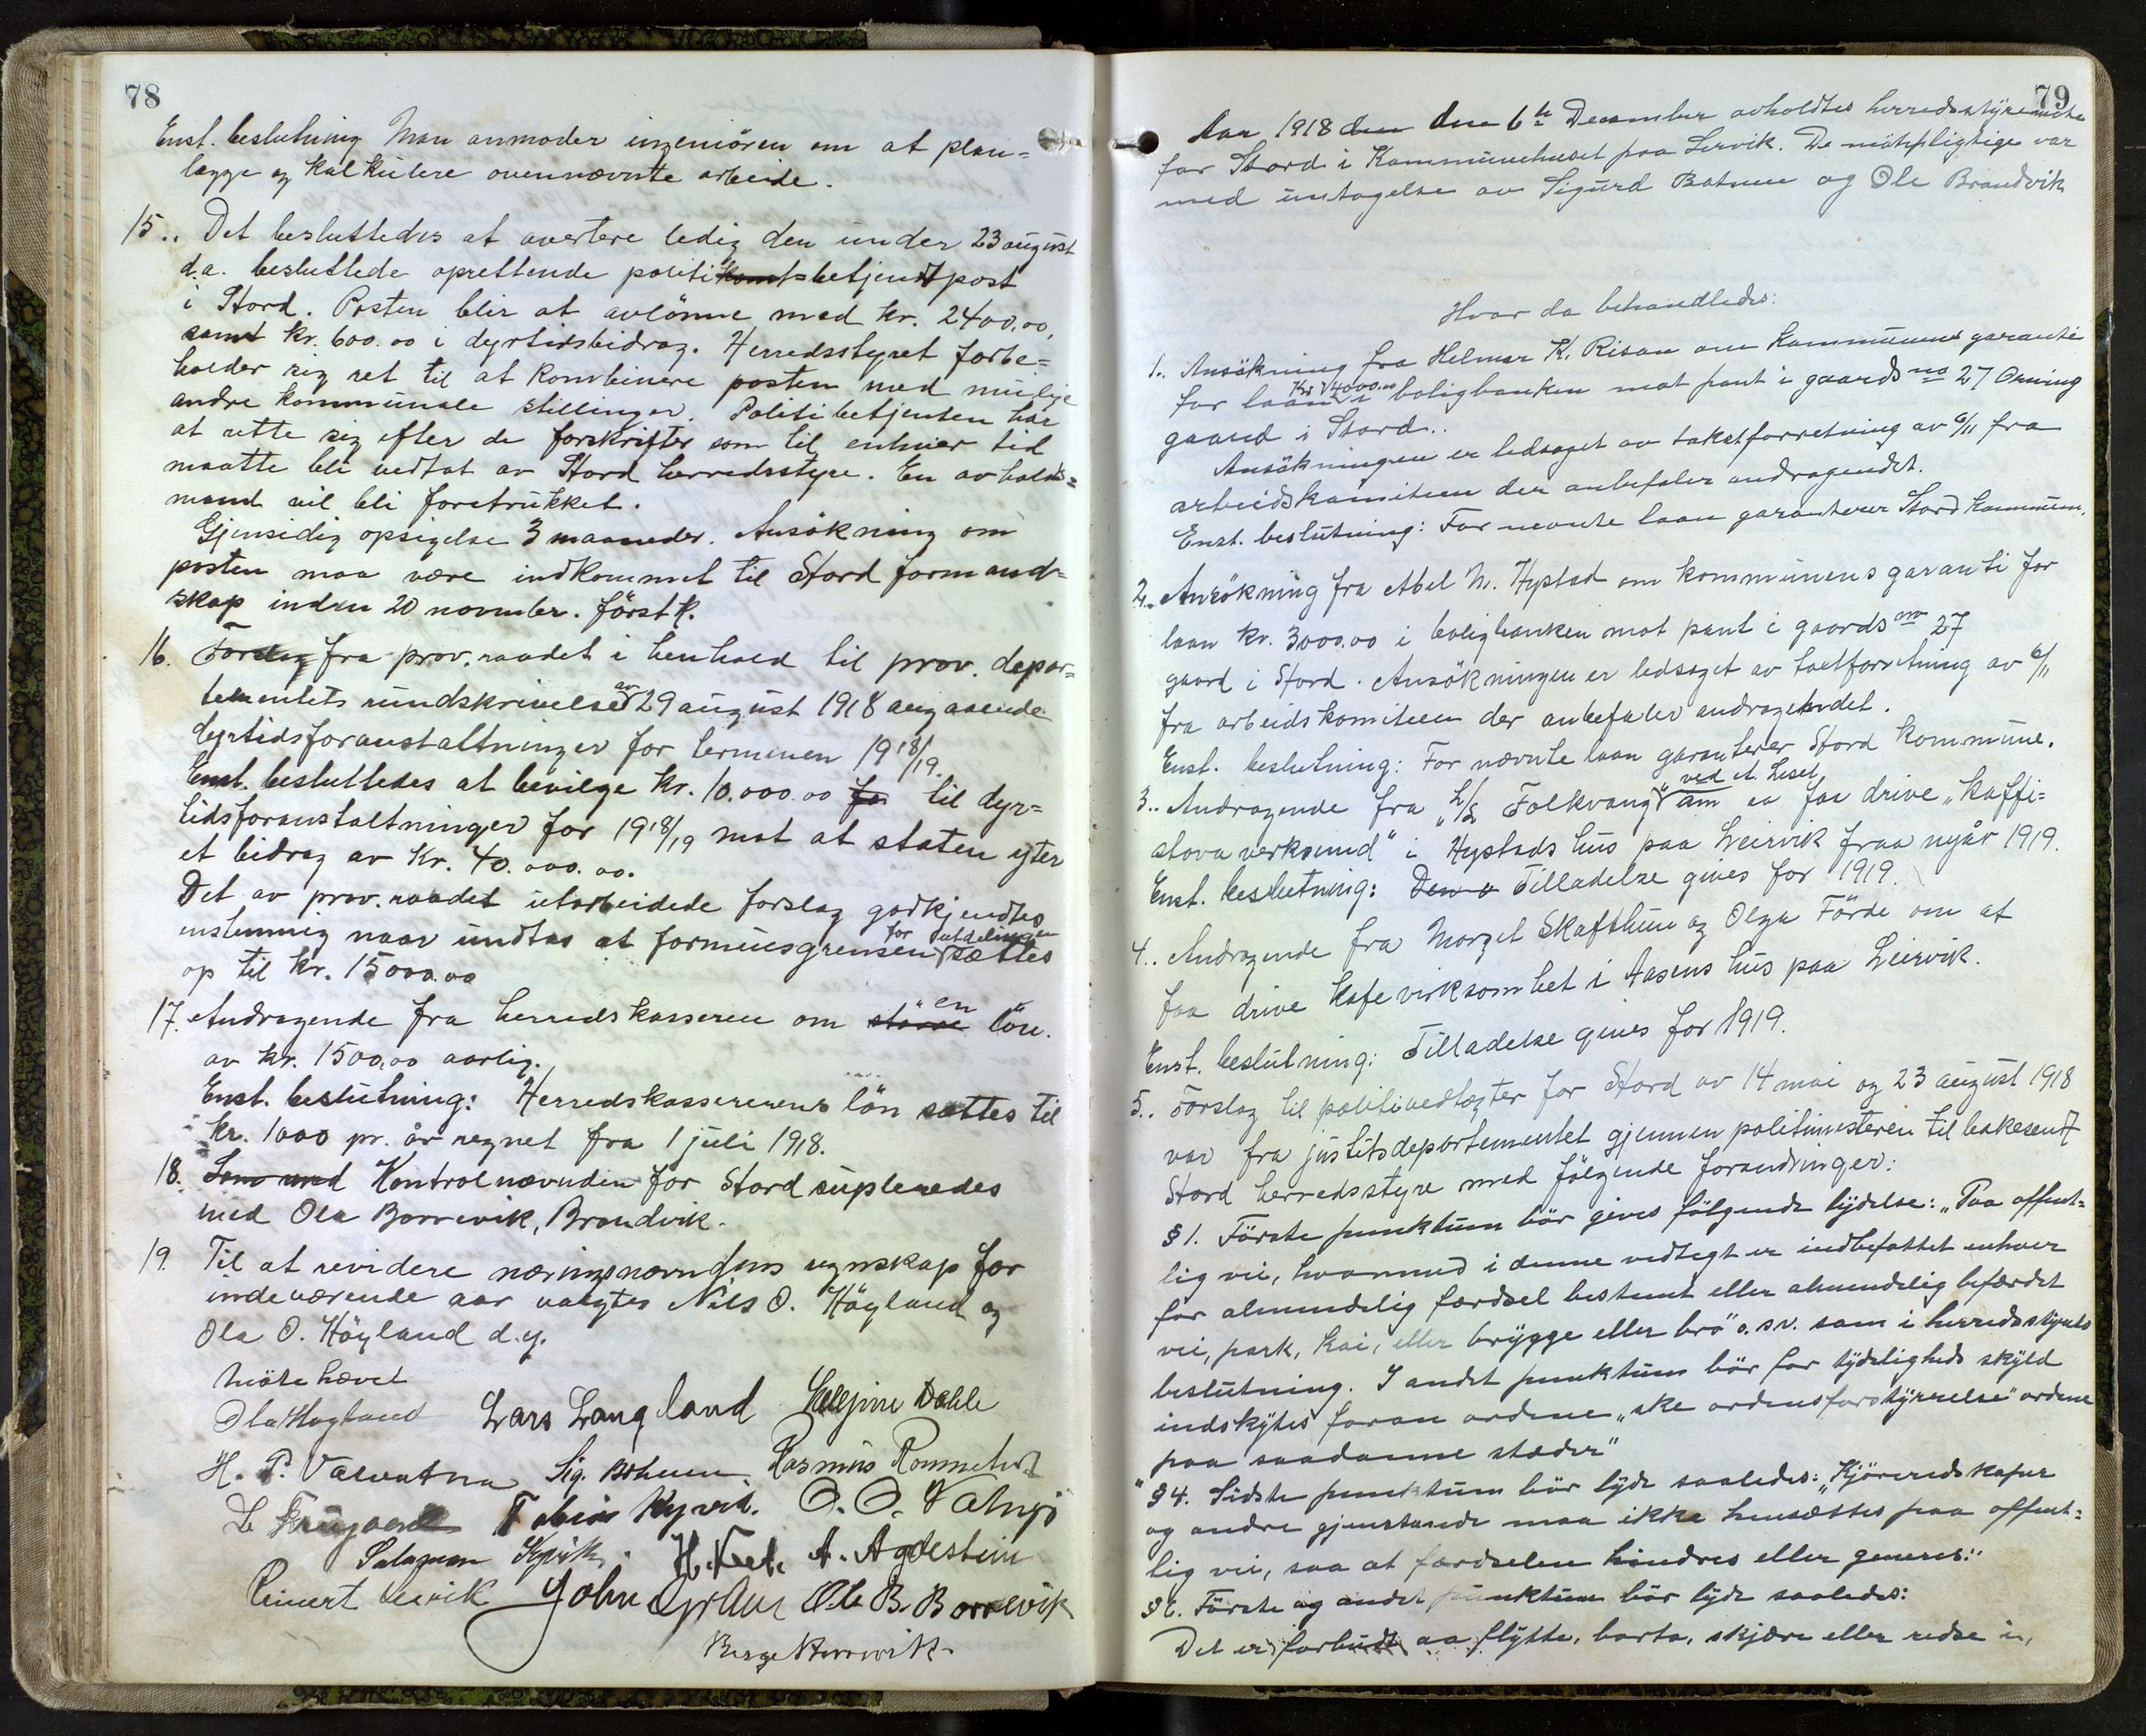 78
Enst. beslutning Man anmoder ingeniören om at plan=
lægge og kalkulere ovennævnte arbeide.
15.. Det besluttedes at avertere ledig den under 23 august
d.a. besluttede oprettende politi betjent post
i Stord. Posten blir at avlönne med kr. 2400.00,
samt kr. 600.00 i dyrtidsbidrag. Herredsstyret forbe=
holder sig ret til at kombinere posten med mulige
andre kommunale stillinger. Politibetjenten har
at rette sig efter de forskrifter som til enhver tid
maatte bli vedtat av Stord herredsstyre. En avholds=
mand vil bli foretrukket.
Gjensidig opsigelse 3 maaneder. Ansökning om
posten maa være indkommet til Stord formand=
skap inden 20 november. förstk.
16. Forslag fra prov. raadet i henhold til prov. depar=
tementets rundskrivelse av 29 august 1918 angaaende
dyrtidsforanstaltninger for terminen 1918/19.
Enst. besluttedes at bevilge kr. 10.000.00 for til dyr=
tidsforanstaltninger for 1918/19 mot at staten yter
et bidrag av Kr. 40.000.00.
Det av prov. raadet utarbeidede forslag godkjendtes
enstemmig naar undtas at formuesgrensen for utdelingen sættes
op til kr. 15000.00
17. Andragende fra herredskasseren om större en lön.
av kr. 1500,00 aarlig.
Enst. beslutning: Herredskassererens lön sættes til
kr. 1000 pr. år regnet fra 1 juli 1918.
18. Kontrolnævnden for Stord supleredes
med Ola Borrevik, Brandvik.
19. Til at revidere næringsnævndens regnskap for
indeværende aar valgtes Nils O. Höyland og
Ola O. Höyland d.y.
Möte hævet
Ola Høyland Lars Langeland Dahle
H. P. Valvatna Sig. Rasmus Rommetveit
Tobias Kyvik. O. O. Vatnöi
Salamon Kyvik. A. Agdestein
Reinert Leirvik John Ole B. Borrevik
Berge
79
Aar 1918 den den 6te December avholdtes herredsstyremöte
for Stord i Kommunehuset paa Lervik. De mötepligtige var
med untagelse av Sigurd Batnue og Ole Brandvik
Hvor da behandledes:
1.. Ansökning fra Helmer K. Risan om Kommunens garanti
for laan Kr 4000.00 i boligbanken mot pant i gaards no 27 Orning
gaard i Stord..
Ansökningen er ledsaget av takstforretning av 6/11 fra
arbeidskomiteen der anbefaler andragendet.
Enst. beslutning: For nevnte laan garanterer Stord Kommune.
2.. Ansökning fra Abel M. Hystad om kommunens garanti for
laan kr. 3000.00 i boligbanken mot pant i gaards no 27
gaard i Stord. Ansökningen er ledsaget av taxtforretning av 6/11
fra arbeidskomiteen der anbefaler andragendet.
Enst. beslutning: For nævnte laan garanterer Stord kommune.
3.. Andragende fra "L/L Folkvang" ved A. Liset am aa faa drive "kaffi=
stova verksemd" i Hystads hus paa Leirvik fraa nyår 1919.
Enst. beslutning: Tilladelse gives for 1919.
4.. Andragende fra Marget Skafthun og Olga Förde om at
faa drive kafevirksomhet i Aasens hus paa Leirvik.
Enst. beslutning: Tilladelse gives for 1919.
5.. Forslag til politivedtægter for Stord av 14 mai og 23 august 1918
var fra justitsdepartementet gjennem politimesteren tilbakesendt
Stord herredsstyre med fölgende forandringer:
§ 1. Förste punktum bör gives fölgende lydelse: "Paa offent=
lig vei, hvormed i denne vedtegt er indbefattet enhver
for almindelig færdsel bestemt eller almindelig befærdet
vei, park, kai, eller brygge eller brö o.s.v. sam i herredsstyrets
beslutning. I andet punktum bör for tydeligheds skyld
indskytes foran ordene "ske ordensforstyrrelse" ordene
paa saadanne stæder"
"§ 4. Sidste punktum bör lyde saaledes: "Kjöreredskaper
og andre gjenstande maa ikke hensættes paa offent=
lig vei, saa at færdselen hindres eller generes."
§ 6. Förste og andet punktum bör lyde saaledes:
Det er forbudt aa flytte, borta, skjære eller redse i,